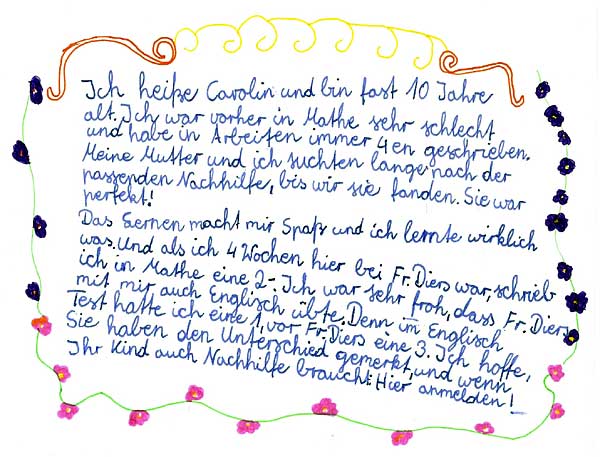 Ich heiße Carolin und bin fast 10 Jahre
alt. Ich war vorher in Mathe sehr schlecht
und habe in Arbeiten immer 4en geschrieben.
Meine Mutter und ich suchten lange nach der
passenden Nachhilfe, bis wir sie fanden. Sie war
perfekt!
Das Lernen macht mir Spaß und ich lernte wirklich
was. Und als ich 4 Wochen hier bei Fr. Diers war, schrieb
ich in Mathe eine 2-. Ich war sehr froh, dass Fr. Diers
mit mir auch Englisch übte. Denn im Englisch
Test hatte ich eine 1, vor Fr. Diers eine 3. Ich hoffe,
Sie haben den Unterschied gemerkt, und wenn
Ihr Kind auch Nachhilfe braucht: Hier anmelden!